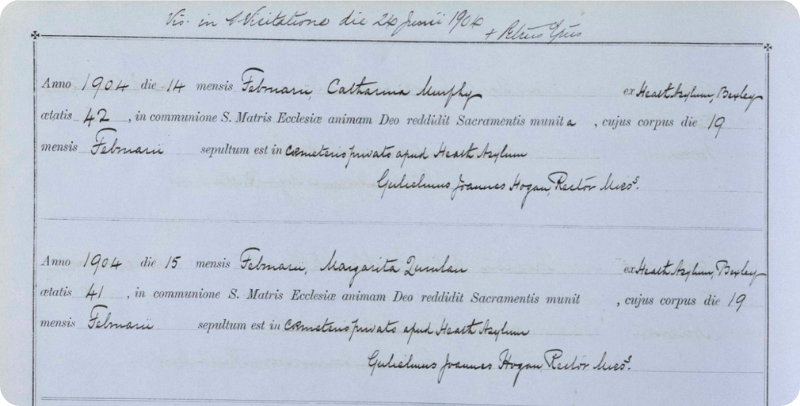 Vis. in S. Visitatione die 24 Junii 1904
+ Petrus Epus
Anno 1904 die 14 mensis Februarii, Catharina Murphy ex Heath Asylum, Bexley
ætatis 42, in communione S. Matris Ecclesiæ animam Deo reddidit Sacramentis munita, cujus corpus die 19
mensis Februarii sepultum est in Cœmeterio privato apud Heath Asylum
Gulielmus Joannes Hogan, Rector Miss.
Anno 1904 die 15 mensis Februarii, Margarita Quinlan ex Heath Asylum, Bexley
ætatis 41, in communione S. Matris Ecclesiæ animam Deo reddidit Sacramentis munit , cujus corpus die 19
mensis Februarii sepultum est in Cœmeterio privato apud Heath Asylum
Gulielmus Joannes Hogan Rector Miss.